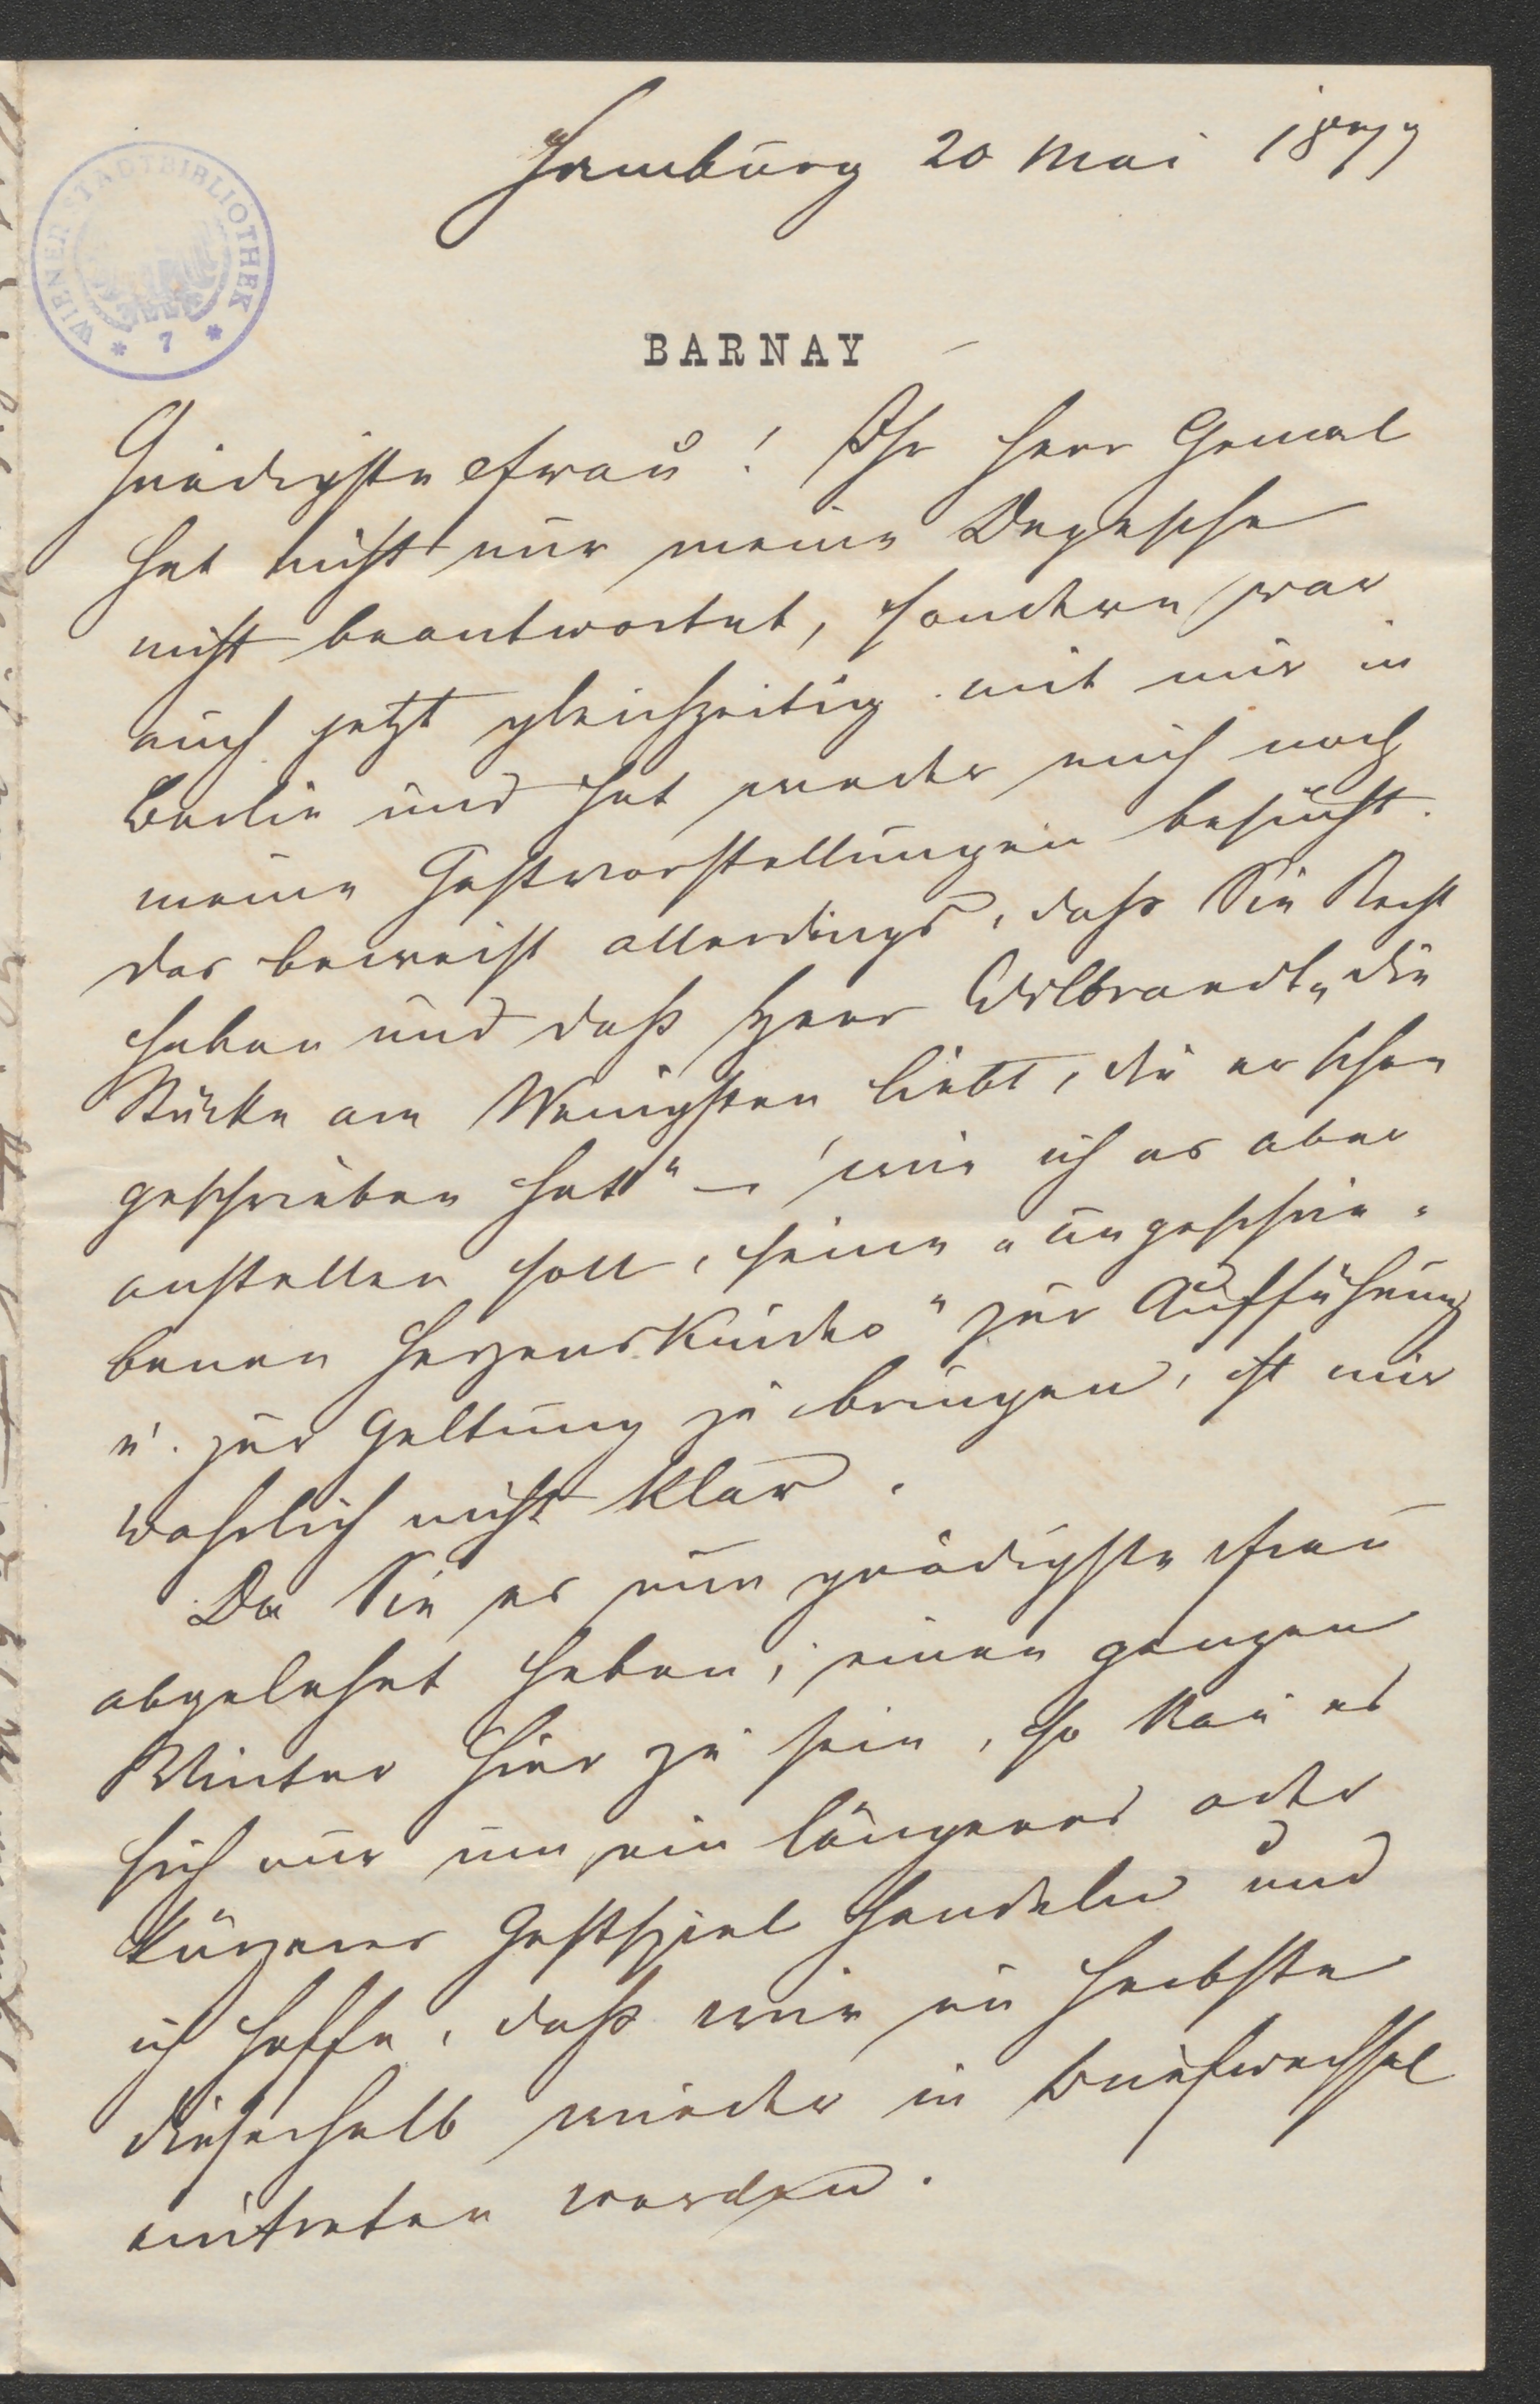 Hamburg 20 Mai 1877
WIENER STADTBIBLIOTHEK
* 7 *
BARNAY
Gnädigste Frau! Ihr Herr Gemal
hat nicht nur meine Depesche
nicht beantwortet, sondern war
auch jetzt gleichzeitig mit mir in
Berlin und hat weder mich noch
meine Gastvorstellungen besucht.
das beweist allerdings, dass Sie Recht
haben und daß Herr Wilbrandt „die
Stücke am Wenigsten liebt, die er schon
geschrieben hat“ – wie ich es aber
anstellen soll, seine „ungeschrie-
benen Herzenskinder“ zur Aufführung
u. zur Geltung zu bringen, ist mir
wahrlich nicht klar.
Da Sie es nun gnädigste Frau
abgelehnt haben, einen ganzen
Winter hier zu sein, so kan̄ es
sich nur um ein längeres oder
kürzeres Gastspiel handeln und
ich hoffe, daß wir im Herbste
dieserhalb wieder in Briefwechsel
eintreten werden.